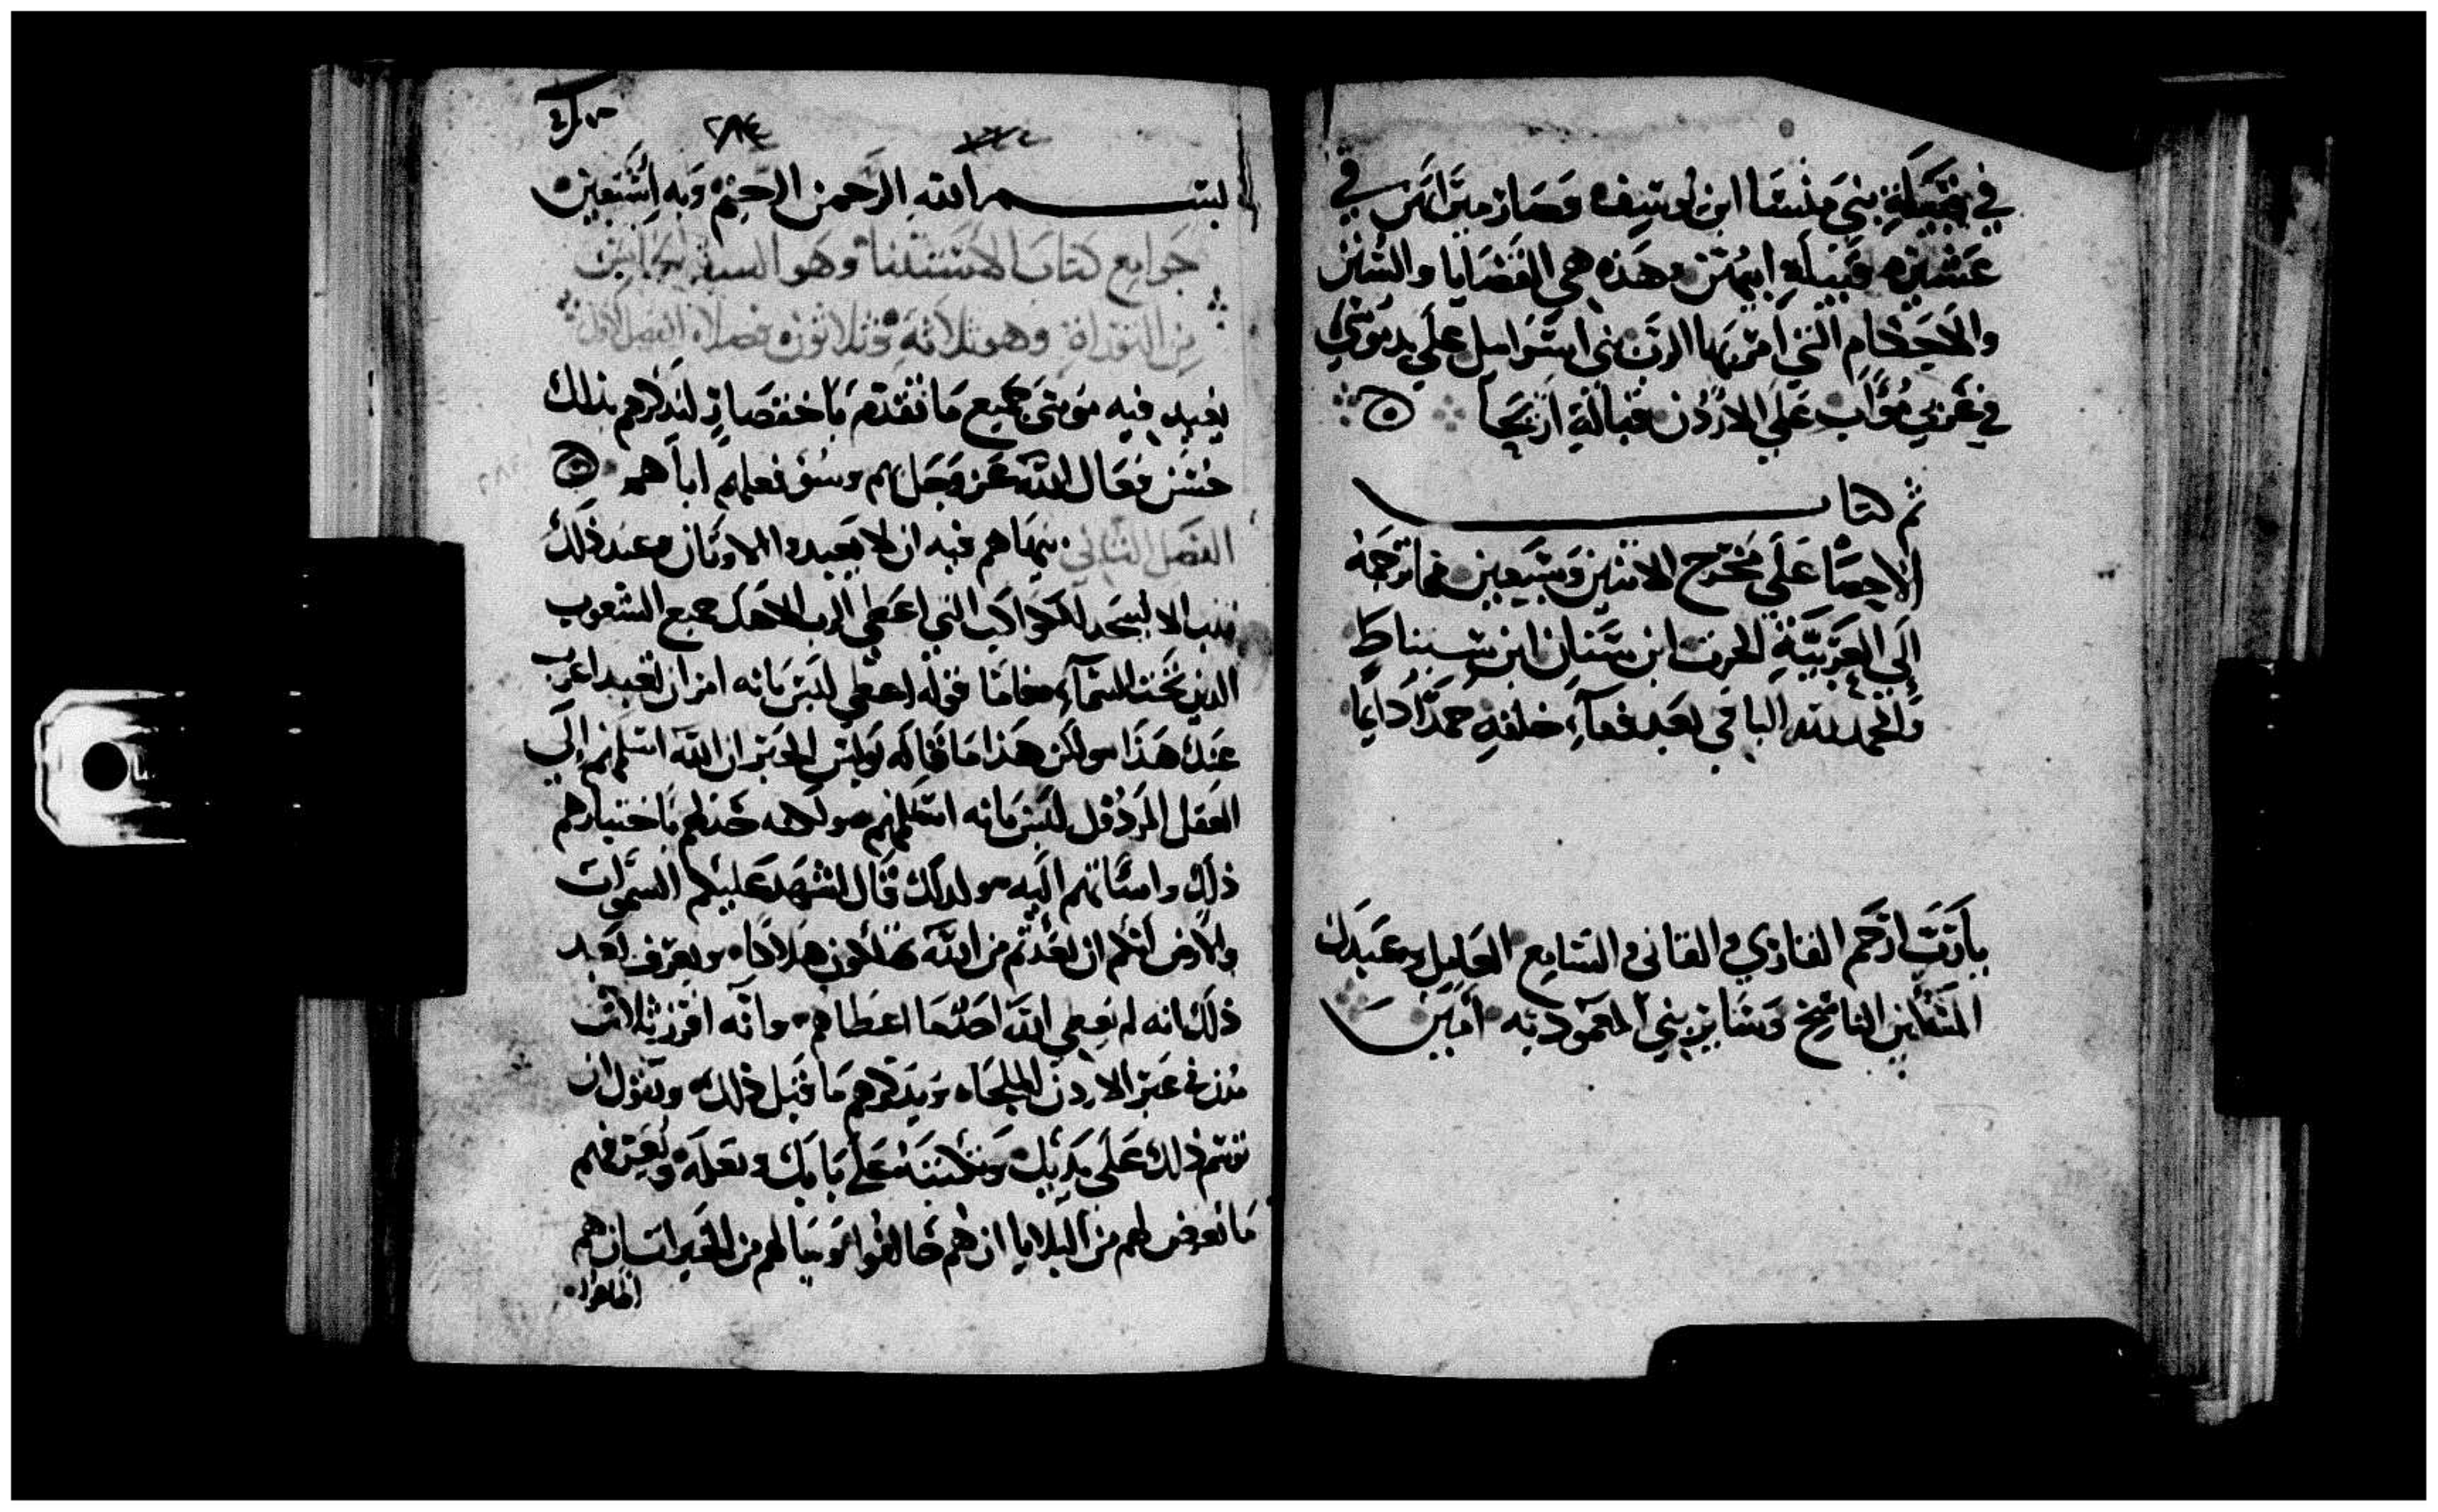 في قبيلة بني منسا ابن يوسف وصار ميراثهن في
عشيرة قبيلة ابيهن وهذه هي القضايا والسنن
والاحكام التي امر بها الرب بني اسرايل علي يد موسي
في غربي مواب علي الاردن قبالة اريحا
تم كتاب
الاحصا علي مخرج الاثنين وسبعين مما ترجمه
الي العربية الحرث ابن سنان ابن سنباط
والحمد لله الباقي بعد فنآء خلقه حمدًا دايما
يا رب ارحم القاري والقاني والسامع العليل وعبدك
المسكين الناسخ وساير بني المعمودية امين
٢٨٤
بسم الله الرحمن الرحيم وبه استعين
جوامع كتاب الاستثنا وهو السفر الخامس
من التوراة وهو ثلاثة وثلاثون فصلا الفصل الاول
يعيد فيه موسي جميع ما تقدم باختصار لتذكرهم بذلك
حسن فعال الله عز وجل بهم وسوء فعلهم اباهم
الفصل الثاني ينهاهم فيه ان لا يعبدوا الاوثان وعند ذلك
الا ليسجد للكواكب التي اعطي الرب الاهك جميع الشعوب
الذين تحت السمآء فاما قوله اعطي ليس بانه امر ان تعبد
عند هذا ولكن هذا ما قاله بولس الحبر ان الله اسلمهم الي
العقل المرذول ليس بانه اسلمهم ولكنه خذلهم باختيارهم
ذلك واساتهم اليه ولذلك قال اشهد عليكم السموات
والارض انكم ان بعدتم من الله تهلكون هلاكا ويعرف بعد
ذلك انه لم يعطي الله احدا ما اعطاهم وانه افرز ثلاث
مدن في عبر الاردن للملجاء ويذكرهم ما قبل ذلك ويقول ان
توسم ذلك علي يديك وتكتبه علي بابك وتعرفهم
ما يعرض لهم من البلايا ان هم خالفوا وما لهم من الخيرات ان هم
اطاعوا